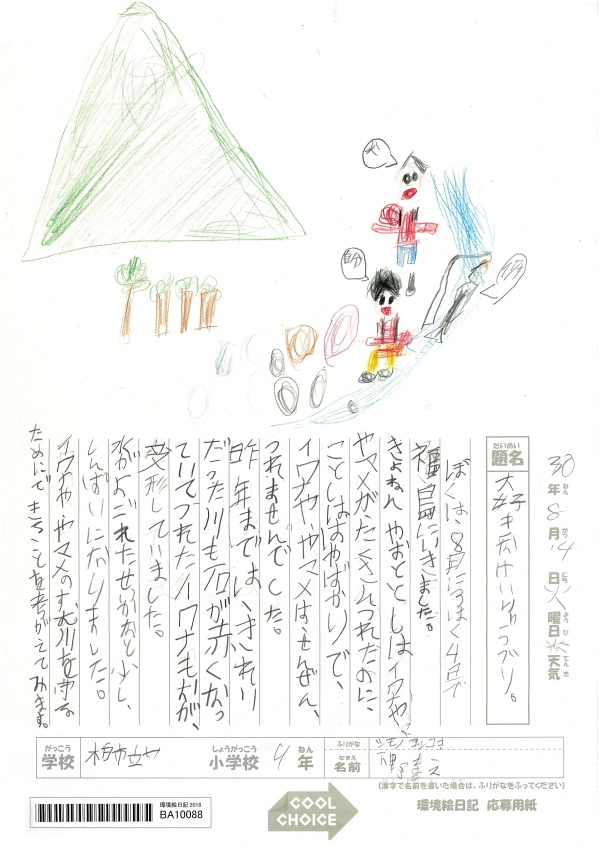 父
自分
30年8月14日火曜日 天気
だいめい
題名
大好きなけいりゅうづり。
ぼくは、8月に3ぱく4日で
福島にいきました。
きょねんやおととしはイワナや、
ヤマメがたくさんつれたのに、
ことしはおやばかりで、
イワナや、ヤマメはぜんぜん、
つれませんでした。
昨年まではいきれい
だった川も石が赤くなっ
ていてつれたイワナも口が、
変形していました。
水がよごれたせいかなと少し、
しんぱいになりました。
イワナや、ヤマメのすむ川を守る
ためにできることを考がえてみます。
がっこう
学校
柏市立
しょうがっこう
小学校
4年
ねん
ふりがな
なまえ
名前
(漢字で名前を書いた場合は、ふりがなをふってください)
環境絵日記 2018
BA10088
COOL
CHOICE
環境絵日記 応募用紙